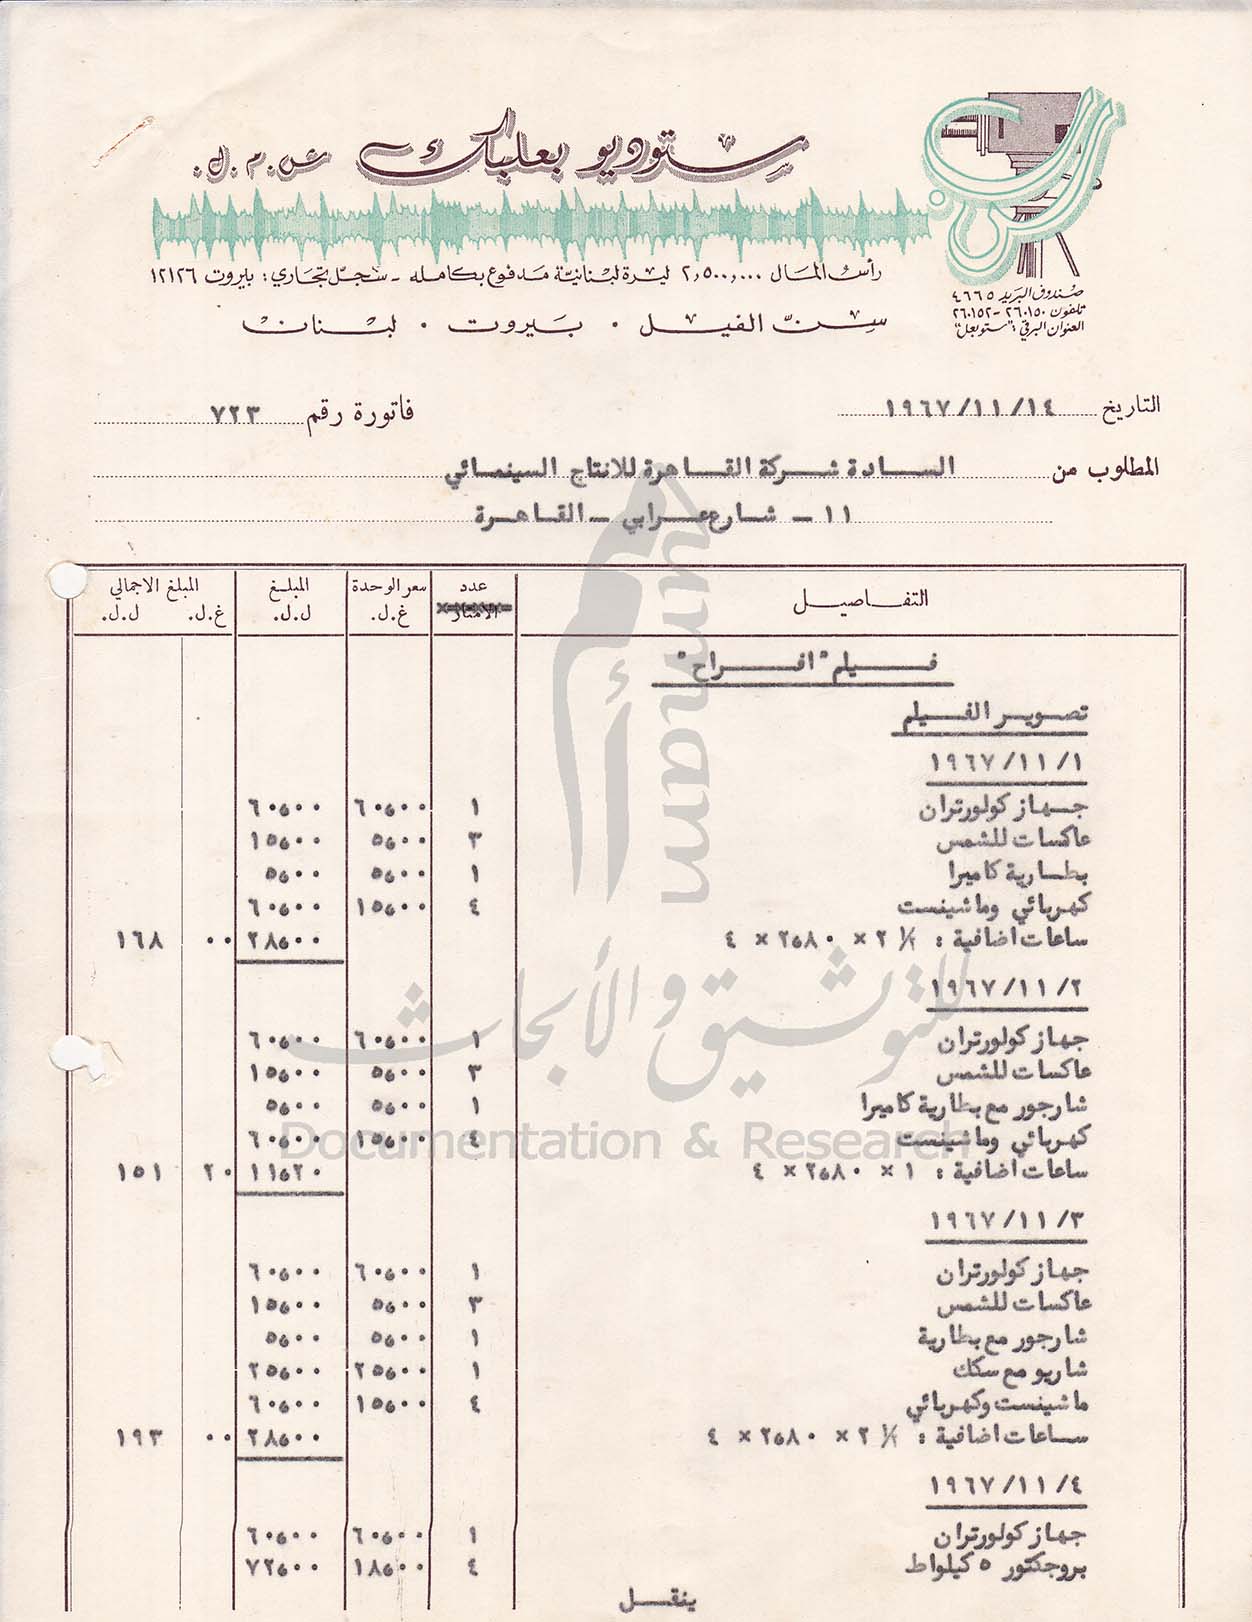 ستوديو بعلبك ش.م.ل.
رأس المال ٢,٥٠٠,٠٠٠ ليرة لبنانية مدفوع بكامله - سجل تجاري: بيروت ١٢١٢٦
سن الفيل . بيروت . لبنان
صندوق البريد ٤٦٦٥
تلفون ٢٦٠١٥٠ - ٢٦٠١٥٢
العنوان البرقي: "ستوبعل"
التاريخ ١٩٦٧/١١/١٤ فاتورة رقم ٧٢٣
المطلوب من السادة شركة القاهرة للانتاج السينمائي
١١ - شارع عرابي - القاهرة
التفاصيل عدد الامتار سعر الوحدة غ.ل. المبلغ ل.ل. المبلغ الاجمالي غ.ل. ل.ل.
فيلم "افراح"
تصوير الفيلم
١٩٦٧/١١/١
جهاز كولورتران ١ ٦٠،٠٠ ٦٠،٠٠
عاكسات للشمس ٣ ٥،٠٠ ١٥،٠٠
بطارية كاميرا ١ ٥،٠٠ ٥،٠٠
كهربائي وماشينست ٤ ١٥،٠٠ ٦٠،٠٠
ساعات اضافية : ½ ٢ × ٢،٨٠ × ٤ ٢٨،٠٠ ٠٠ ١٦٨
١٩٦٧/١١/٢
جهاز كولورتران ١ ٦٠،٠٠ ٦٠،٠٠
عاكسات للشمس ٣ ٥،٠٠ ١٥،٠٠
شارجور مع بطارية كاميرا ١ ٥،٠٠ ٥،٠٠
كهربائي وماشينست ٤ ١٥،٠٠ ٦٠،٠٠
ساعات اضافية : ١ × ٢،٨٠ × ٤ ١١،٢٠ ٢٠ ١٥١
١٩٦٧/١١/٣
جهاز كولورتران ١ ٦٠،٠٠ ٦٠،٠٠
عاكسات للشمس ٣ ٥،٠٠ ١٥،٠٠
شارجور مع بطارية ١ ٥،٠٠ ٥،٠٠
شاريو مع سكك ١ ٢٥،٠٠ ٢٥،٠٠
ماشينست وكهربائي ٤ ١٥،٠٠ ٦٠،٠٠
ساعات اضافية : ½ ٢ × ٢،٨٠ × ٤ ٢٨،٠٠ ٠٠ ١٩٣
١٩٦٧/١١/٤
جهاز كولورتران ١ ٦٠،٠٠ ٦٠،٠٠
بروجكتور ٥ كيلواط ٤ ١٨،٠٠ ٧٢،٠٠
ينقل
أمم umam
للتوثيق و الأبحاث
Documentation & Research